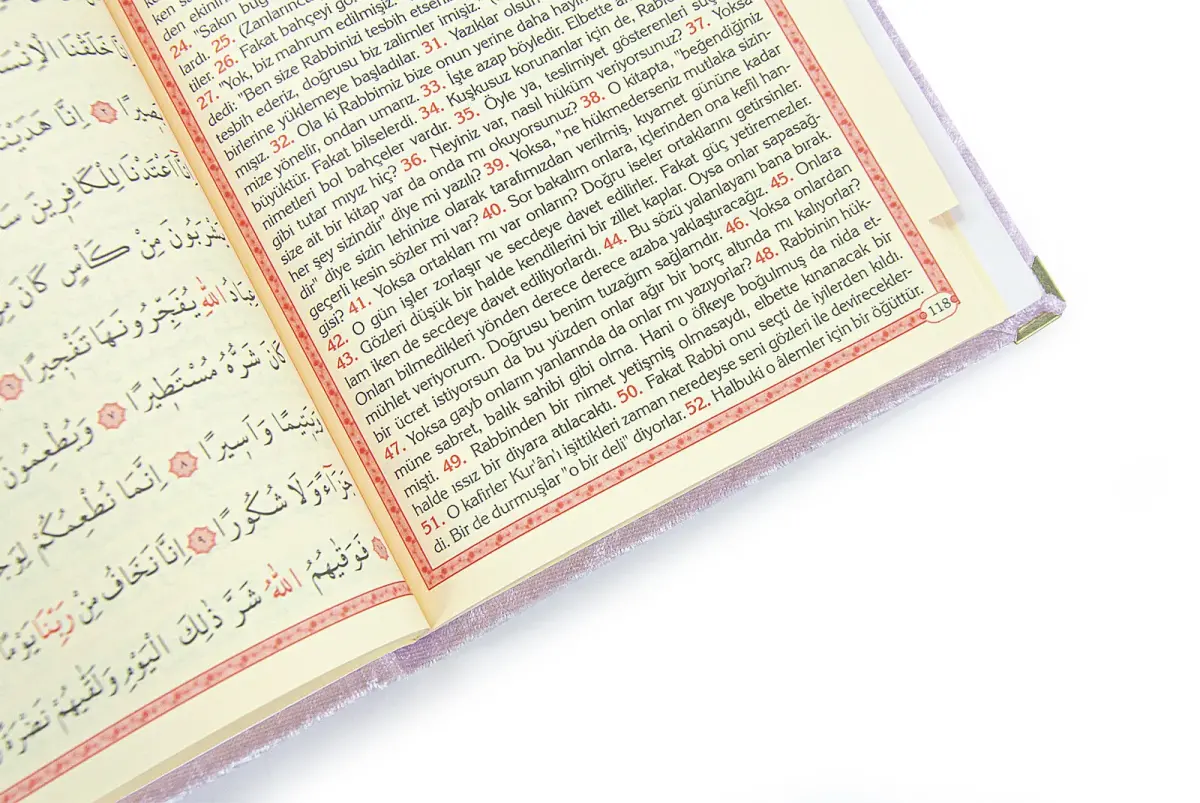 نَّا خَلَقْنَا الْاِنْسَا
يرًا ٢ اِنَّا هَدَيْنَا
اَعْتَدْنَا لِلْكَافِر۪ينَ سَ
شْرَبُونَ مِنْ كَأْسٍ كَانَ
بَادُ اللّٰهِ يُفَجِّرُونَهَا تَفْج۪يرًا ٦
كَانَ شَرُّهُ مُسْتَط۪يرًا ٧ وَيُطْعِمُونَ
وَيَت۪يمًا وَاَس۪يرًا ٨ اِنَّمَا نُطْعِمُكُمْ لِوَجْ
جَزَٓاءً وَلَا شُكُورًا ٩ اِنَّا نَخَافُ مِنْ رَبِّنَا يَوْمًا
فَوَقٰيهُمُ اللّٰهُ شَرَّ ذٰلِكَ الْيَوْمِ وَلَقّٰيهُمْ نَضْرَةً
ken se
den ekinin
24. "Sakın bug
lardı. 25. (Zanlarınca
tiler. 26. Fakat bahçeyi gö
27. "Yok, biz mahrum edilmişiz.
dedi: "Ben size Rabbinizi tesbih etsen
tesbih ederiz, doğrusu biz zalimler imişiz." (
birlerine yüklemeye başladılar. 31. Yazıklar olsun
mışız. 32. Ola ki Rabbimiz bize onun yerine daha hayır
mize yönelir, ondan umarız. 33. İşte azap böyledir. Elbette
büyüktür. Fakat bilselerdi. 34. Kuşkusuz korunanlar için de, Rable
nimetleri bol bahçeler vardır. 35. Öyle ya, teslimiyet gösterenleri suç
gibi tutar mıyız hiç? 36. Neyiniz var, nasıl hüküm veriyorsunuz? 37. Yoksa
size ait bir kitap var da onda mı okuyorsunuz? 38. O kitapta, "beğendiğiniz
her şey sizindir" diye mi yazılı? 39. Yoksa, "ne hükmederseniz mutlaka sizin-
dir" diye sizin lehinize olarak tarafımızdan verilmiş, kıyamet gününe kadar
geçerli kesin sözler mi var? 40. Sor bakalım onlara, içlerinden ona kefil han-
gisi? 41. Yoksa ortakları mı var onların? Doğru iseler ortaklarını getirsinler.
42. O gün işler zorlaşır ve secdeye davet edilirler. Fakat güç yetiremezler.
43. Gözleri düşük bir halde kendilerini bir zillet kaplar. Oysa onlar sapasağ-
lam iken de secdeye davet ediliyorlardı. 44. Bu sözü yalanlayanı bana bırak.
Onları bilmedikleri yönden derece derece azaba yaklaştıracağız. 45. Onlara
mühlet veriyorum. Doğrusu benim tuzağım sağlamdır. 46. Yoksa onlardan
bir ücret istiyorsun da bu yüzden onlar ağır bir borç altında mı kalıyorlar?
47. Yoksa gayb onların yanlarında da onlar mı yazıyorlar? 48. Rabbinin hük-
müne sabret, balık sahibi gibi olma. Hani o öfkeye boğulmuş da nida et-
mişti. 49. Rabbinden bir nimet yetişmiş olmasaydı, elbette kunanacak bir
halde ıssız bir diyara atılacaktı. 50. Fakat Rabbi onu seçti de iyilerden kıldı.
51. O kafirler Kur'ân'ı işittikleri zaman neredeyse seni gözleri ile devirecekler-
di. Bir de durmuşlar "o bir deli" diyorlar. 52. Halbuki o âlemler için bir öğüttür.
118